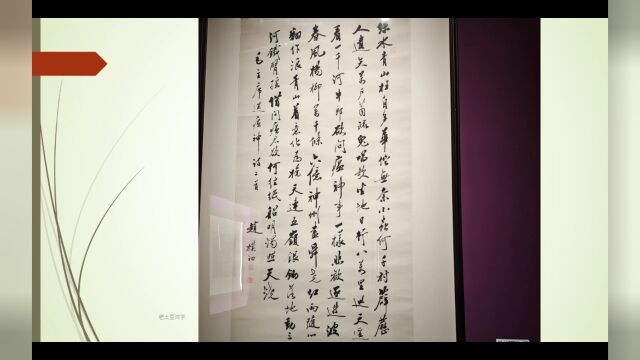 綠水青山枉自多華佗無奈小虫何千村薜荔
人遺矢萬戶蕭疏鬼唱歌坐地日行八萬里巡天遙
看一千河牛郎欲問瘟神事一樣悲歡逐逝波
春風楊柳萬千條六億神州盡舜堯紅雨隨心
翻作浪青山着意化為橋天連五嶺銀鋤落地動三
河鐵臂搖借問瘟君欲何往紙船明燭照天燒
毛主席送瘟神詩二首
趙樸初